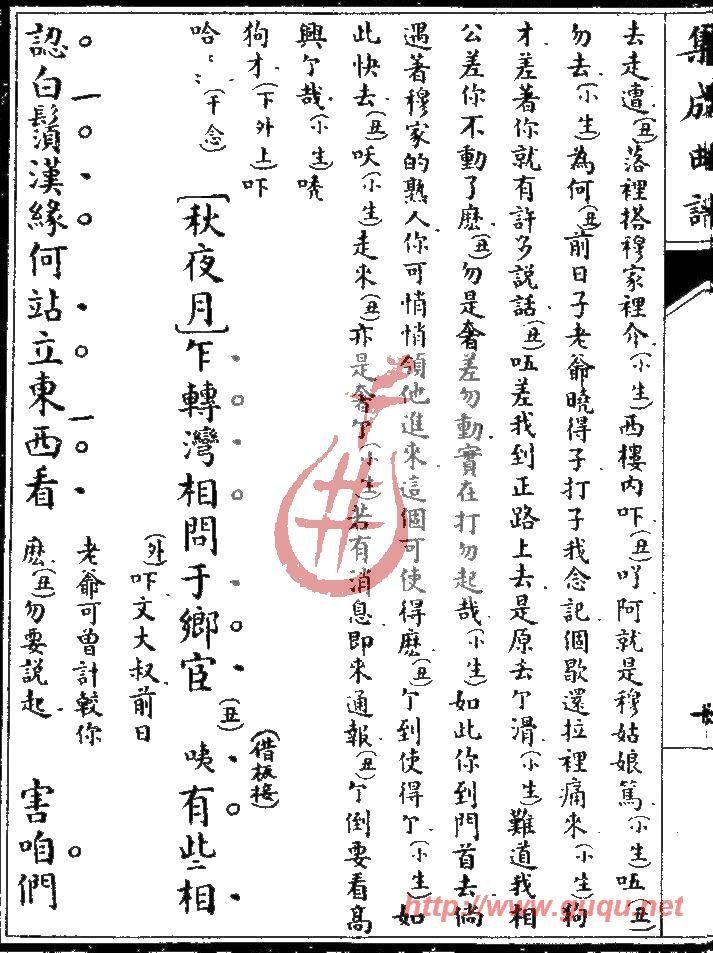 集成曲譜
去走遭(丑)落裡搭穆家裡介(小生)西樓內吓(丑)吖阿就是穆姑娘篤(小生)唔(丑)
勿去(小生)為何(丑)前日子老爺曉得子打子我念記個歇還拉裡痛來(小生)狗
才差著你就有許多說話(丑)唔差我到正路上去是原去个滑(小生)難道我相
公差你不動了麽(丑)勿是奢差勿動實在打勿起哉(小生)如此你到門首去倘
遇著穆家的熟人你可悄悄領他進來這個可使得麽(丑)个到使得个(小生)如
此快去(丑)呋(小生)走來(丑)亦是奢个(小生)若有消息即來通報(丑)个倒要看高
興个哉(小生)哓
狗才(下外上)吓
哈〻(干念)
[秋夜月]乍轉灣相問于鄉宦(丑)咦有些二相(借板接)
(外)吓文大叔前日
老爺可曾計較你
麽(丑)勿要說起
認白鬚漢緣何站立東西看
害咱們
http://www.guqu.net